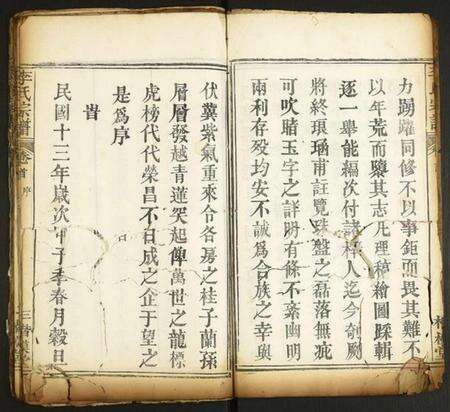 力踴躍同修不以事鉅而畏其難不
以年荒而隳其志凡理稿繪圖踩輯
逐一舉能編次付諸梓人迄今剞劂
將終瑣函甫註覽珠盤之磊落無疵
可吹賭玉字之詳明有條不紊幽明
兩利存歿均安不誠為合族之幸與
伏冀紫氣重來合各房之桂子蘭孫
層層發越青蓮突起俾萬世之龍標
虎榜代代榮昌不日成之企于望之
是為序
旹
民國十三年歲次甲子季春月穀旦
李氏宗譜
卷首 序
三